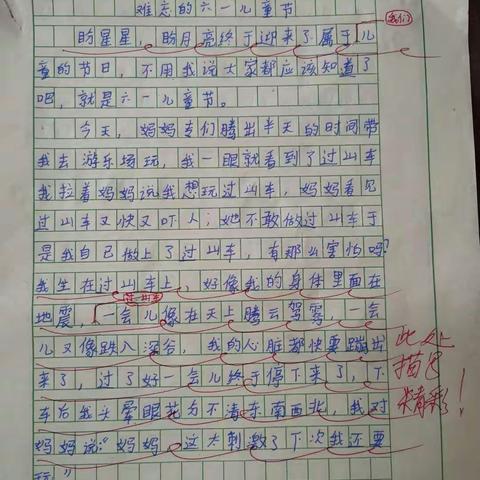 难忘的六一儿童节
我们
盼星星,盼月亮终于迎来了属于儿
童的节日,不用我说大家都应该知道了
吧,就是六一儿童节。
今天,妈妈专们腾出半天的时间带
我去游乐场玩,我一眼就看到了过山车
我拉着妈妈说我想玩过山车,妈妈看见
过山车又快又吓人;她不敢做过山车于
是我自己做上了过山车,有那么害怕吗?
我坐在过山车上,好像我的身体里面在
地震,一会儿像在天上腾云驾雾,一会
儿又像跌入深谷,我的心脏都快要蹦出
来了,过了好一会儿终于停下来了,下
车后我头晕眼花分不清东南西北,我对
妈妈说:“妈妈,这太刺激了下次我还要
玩。”
此处
描写
精彩!